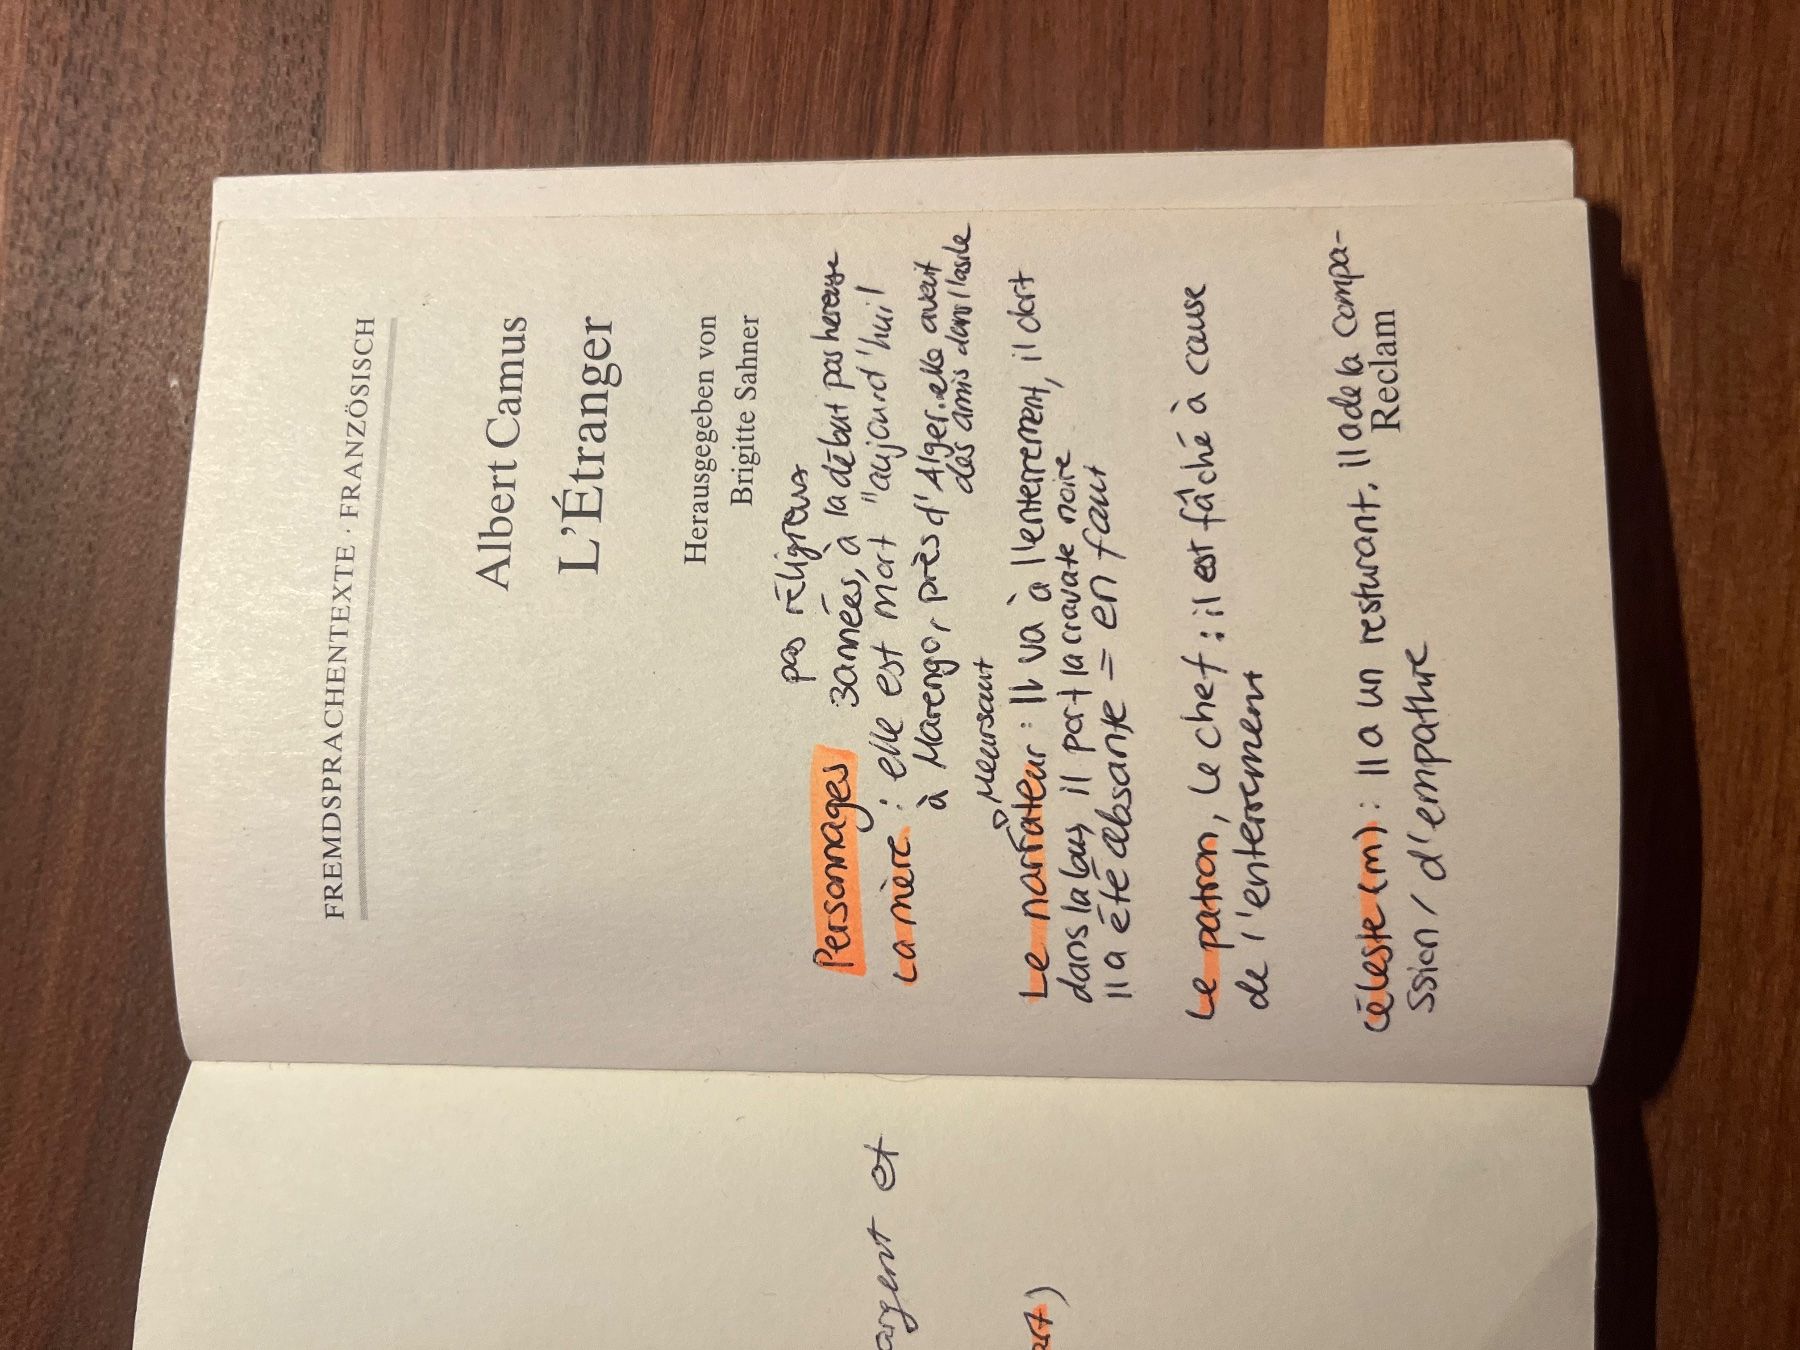 FREMDSPRACHENTEXTE · FRANZÖSISCH
Albert Camus
L'Étranger
Herausgegeben von
Brigitte Sahner
pas réligieux
Personnages 3 années, à la début pas hereuse
La mère : elle est mort "aujourd'hui"
à Marengo, près d'Alger. elle avait
des amis dans l'asile
Meursault
Le narrateur : Il va à l'enterrement, il dort
dans la bus, il port la cravate noire
Il a été absante = en faut
Le patron, le chef : il est fâché à cause
de l'enterrement
Céleste (m) : Il a un resturant. Il a de la compa-
ssion / d'empathie
Reclam
argent et